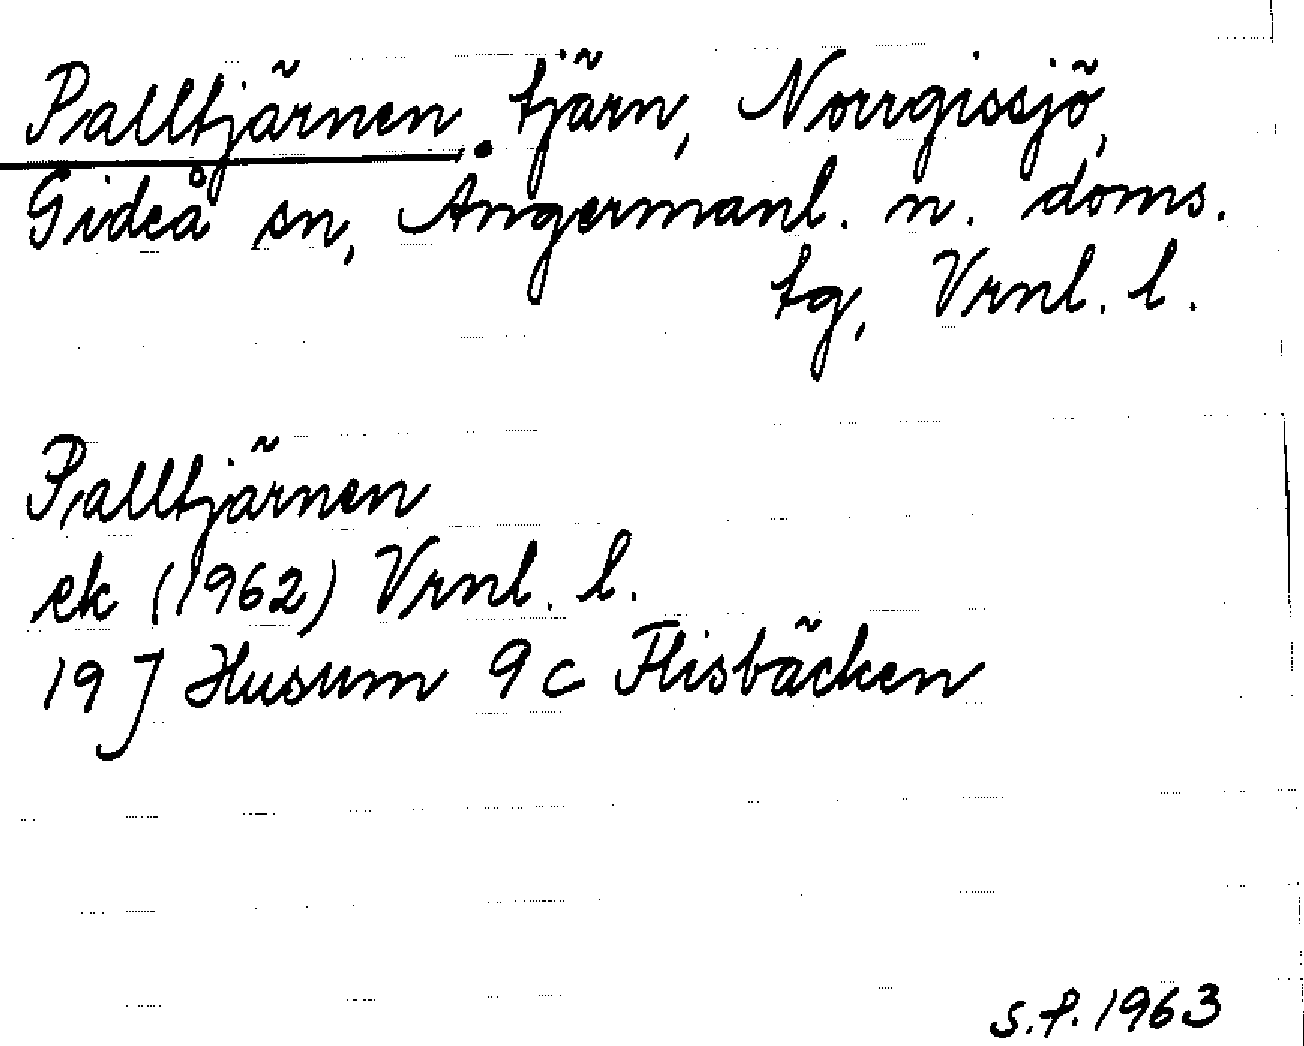 Palltjärnen. tjärn, Norrgissjö,
Gideå sn, Ångermanl. n. doms.
tg, Vrnl. l.
Palltjärnen
ek (1962) Vrnl. l.
19 J Husum 9 c Flisbäcken
S.P. 1963